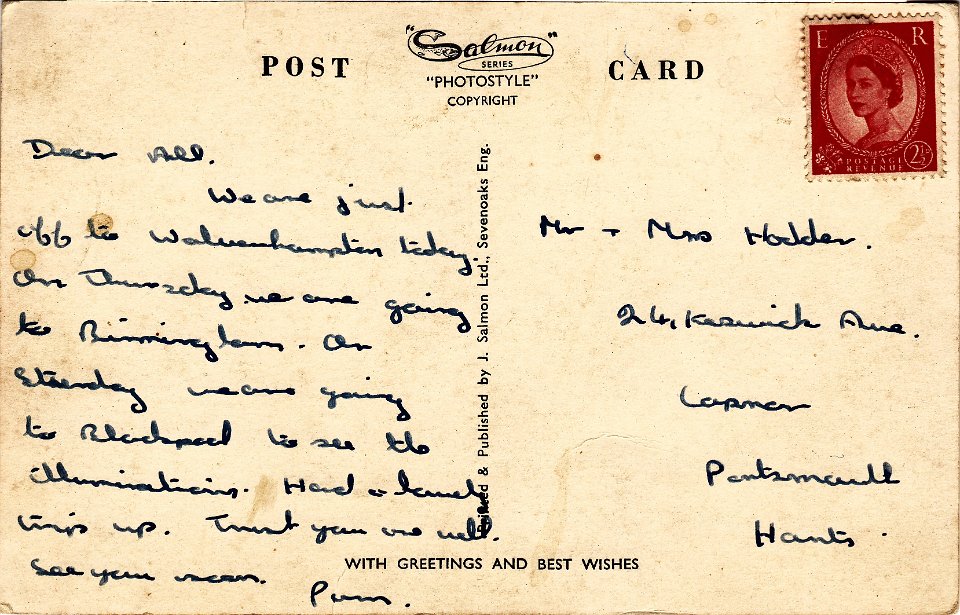 POST CARD
"Salmon"
SERIES
"PHOTOSTYLE"
COPYRIGHT
E R
POSTAGE
REVENUE
2½
Dear All.
We are just
off to Wolverhampton today.
On Thursday we are going
to Birmingham. On
we are going
to Blackpool to see the
illuminations. Had a
trip up. Trust you are well.
See you soon.
Pam.
& Published by J. Salmon Ltd., Sevenoaks Eng.
Mr + Mrs Hodder.
24, Keswick Ave.
Copnor
Portsmouth
Hants.
WITH GREETINGS AND BEST WISHES